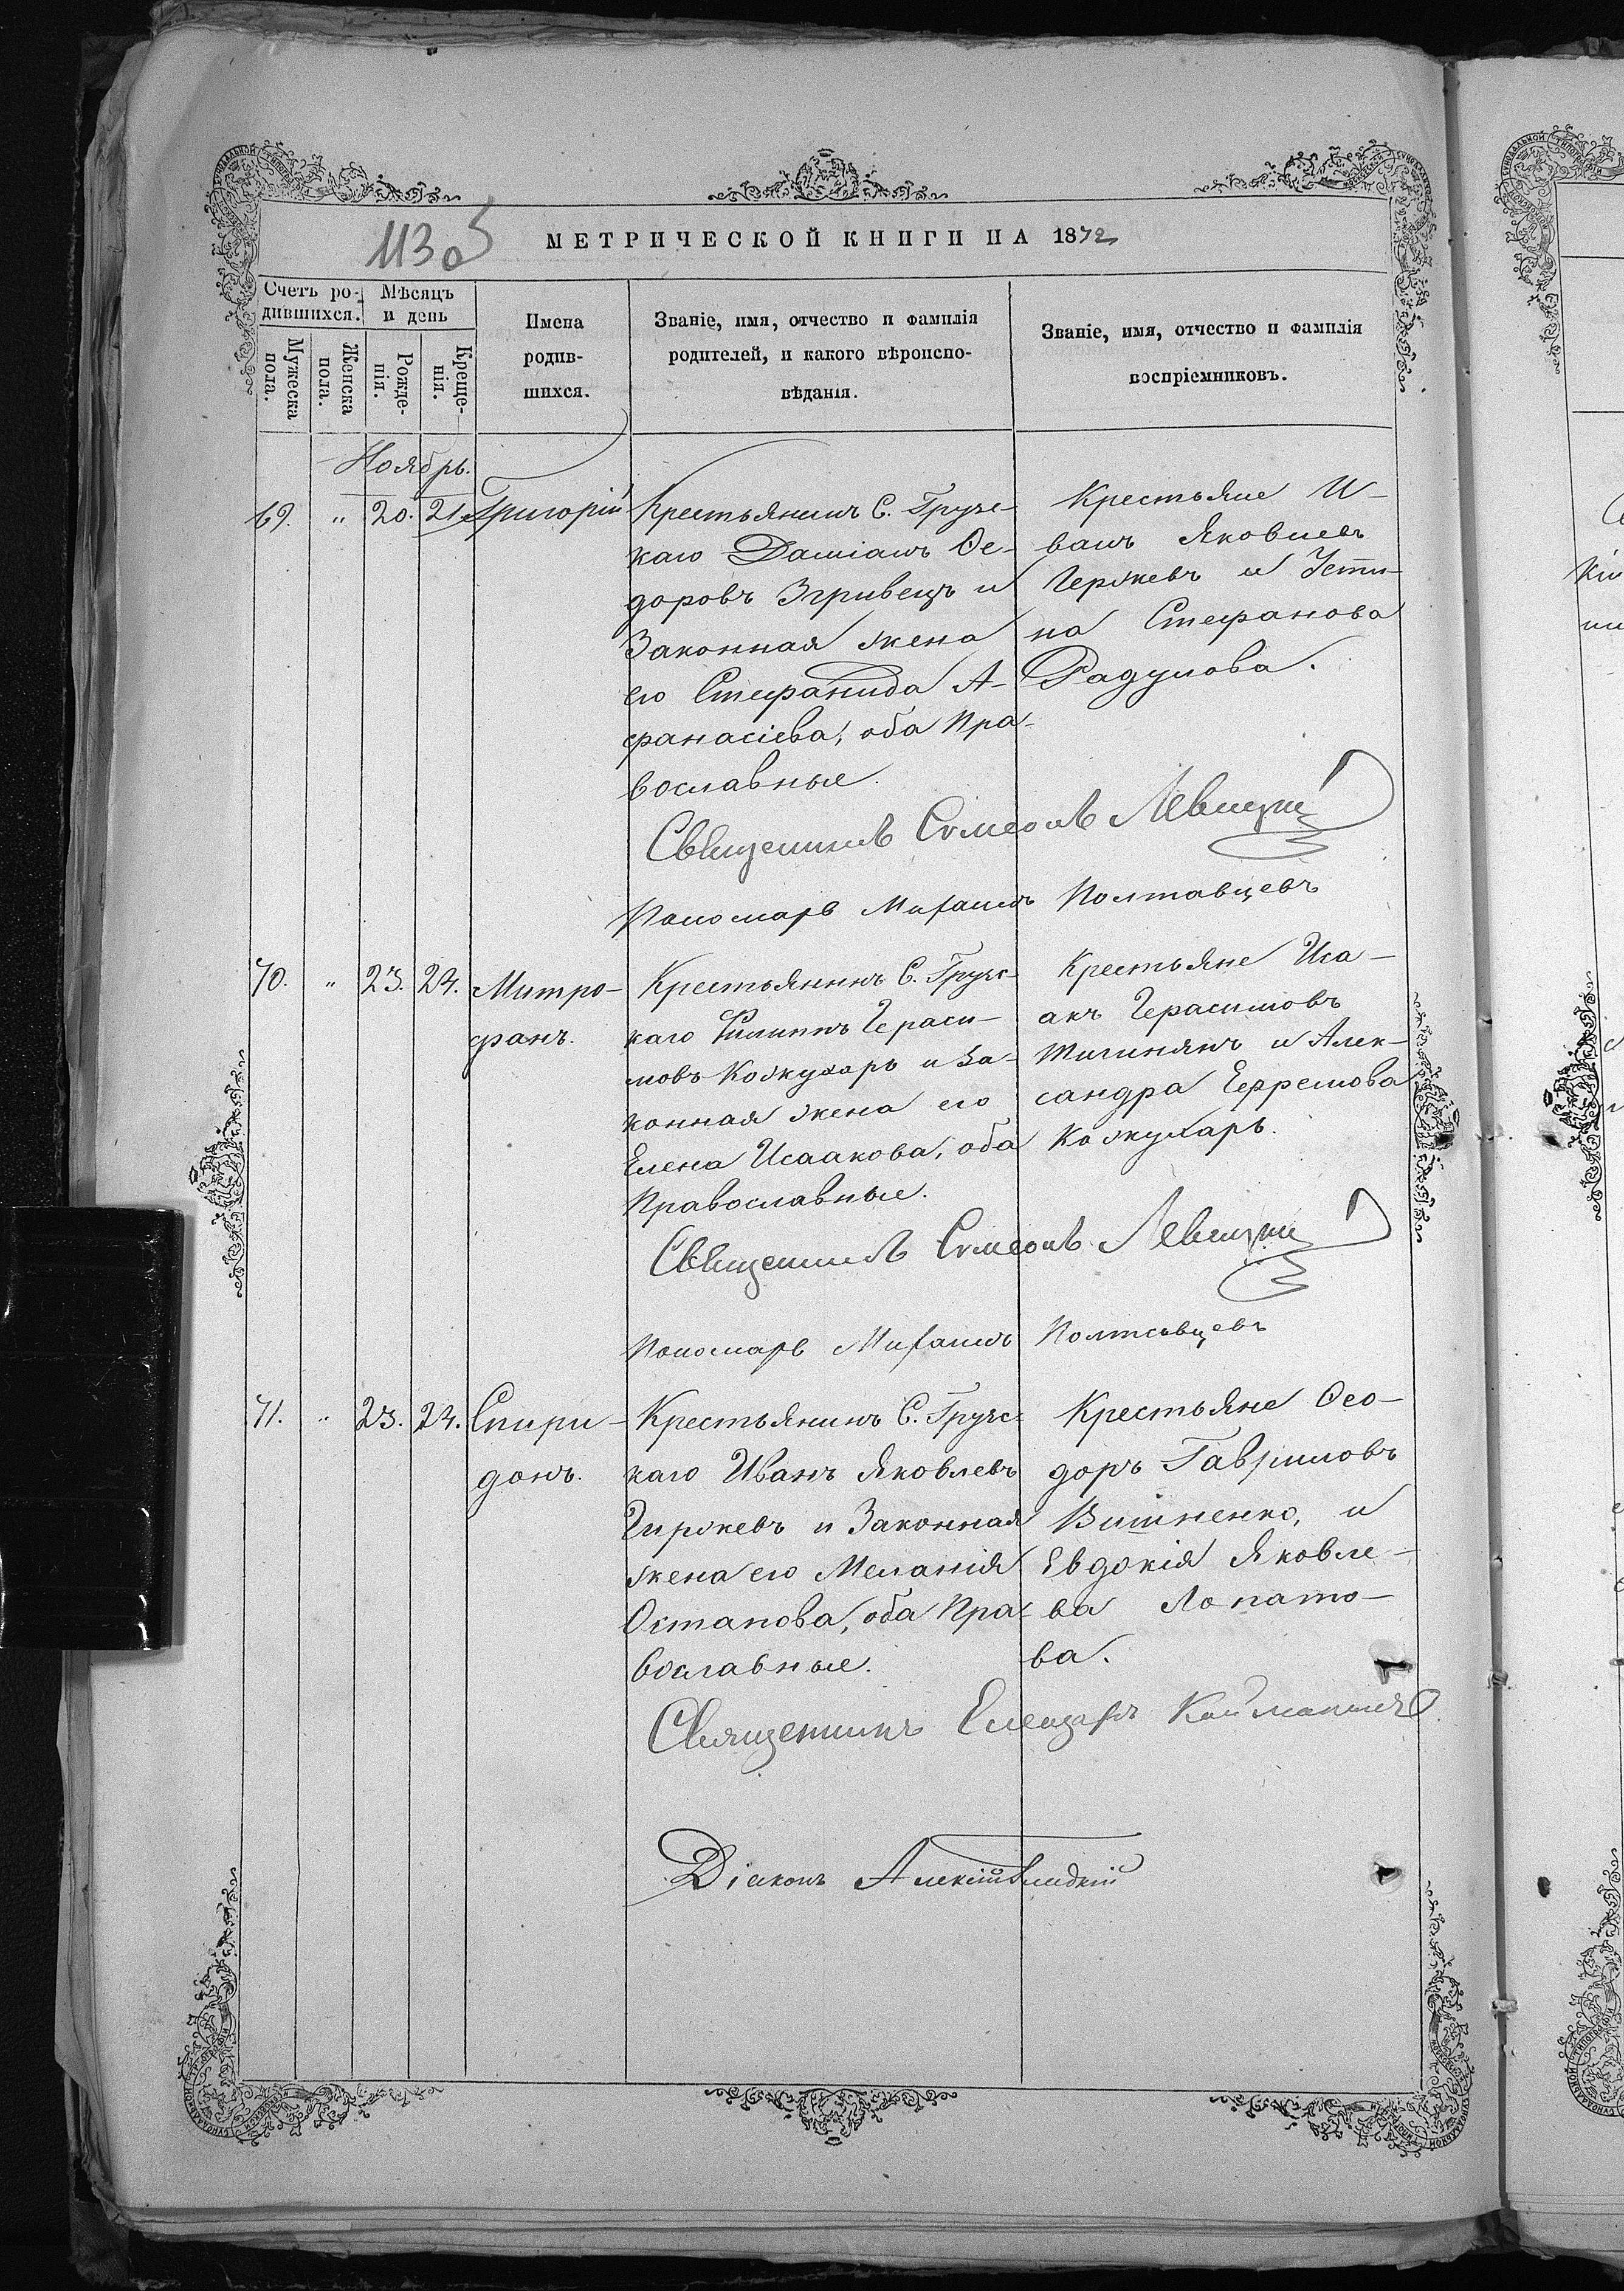 113 об
МЕТРИЧЕСКОЙ КНИГИ НА 1872
Счетъ ро-
дившихся.
Мѣсяцъ
и день
Мужеска
пола.
Женска
пола.
Рожде-
нія.
Креще-
нія.
Имена
родив-
шихся.
Званіе, имя, отчество и фамилія
родителей, и какого вѣроиспо-
вѣданія.
Званіе, имя, отчество и фамилія
воспріемниковъ.
Ноябрь.
69. " 20. 21. Григорій
Крестьянинъ С. Грузс-
каго Даміанъ Ѳе-
доровъ Згривецъ и
Законная жена
его Стефанида А-
фанасіева, оба Пра-
вославные.
Крестьяне И-
ванъ Яковлевъ
Чержевъ и Усти-
на Стефанова
Радулова.
Священникъ Сѵмеонъ Левицкій
Пономарь Михаилъ Полтавцевъ
70. " 23. 24. Митро-
фанъ.
Крестьянинъ С. Грузс-
каго Филиппъ Гераси-
мовъ Кожухарь и За-
конная жена его
Елена Исаакова, оба
Православные.
Крестьяне Иса-
акъ Герасимовъ
Жигинянъ и Алек-
сандра Ефремова
Кожухарь.
Священникъ Сѵмеонъ Левицкій
Пономарь Михаилъ Полтавцевъ
71. " 23. 24. Спири-
донъ.
Крестьянинъ С. Грузс-
каго Иванъ Яковлевъ
Чиржевъ и Законная
жена его Меланія
Остапова, оба Пра-
вославные.
Крестьяне Ѳео-
доръ Гавриловъ
Витненко, и
Евдокія Яковле-
ва Лопато-
ва.
Священникъ Елеазаръ
Діаконъ Алексій